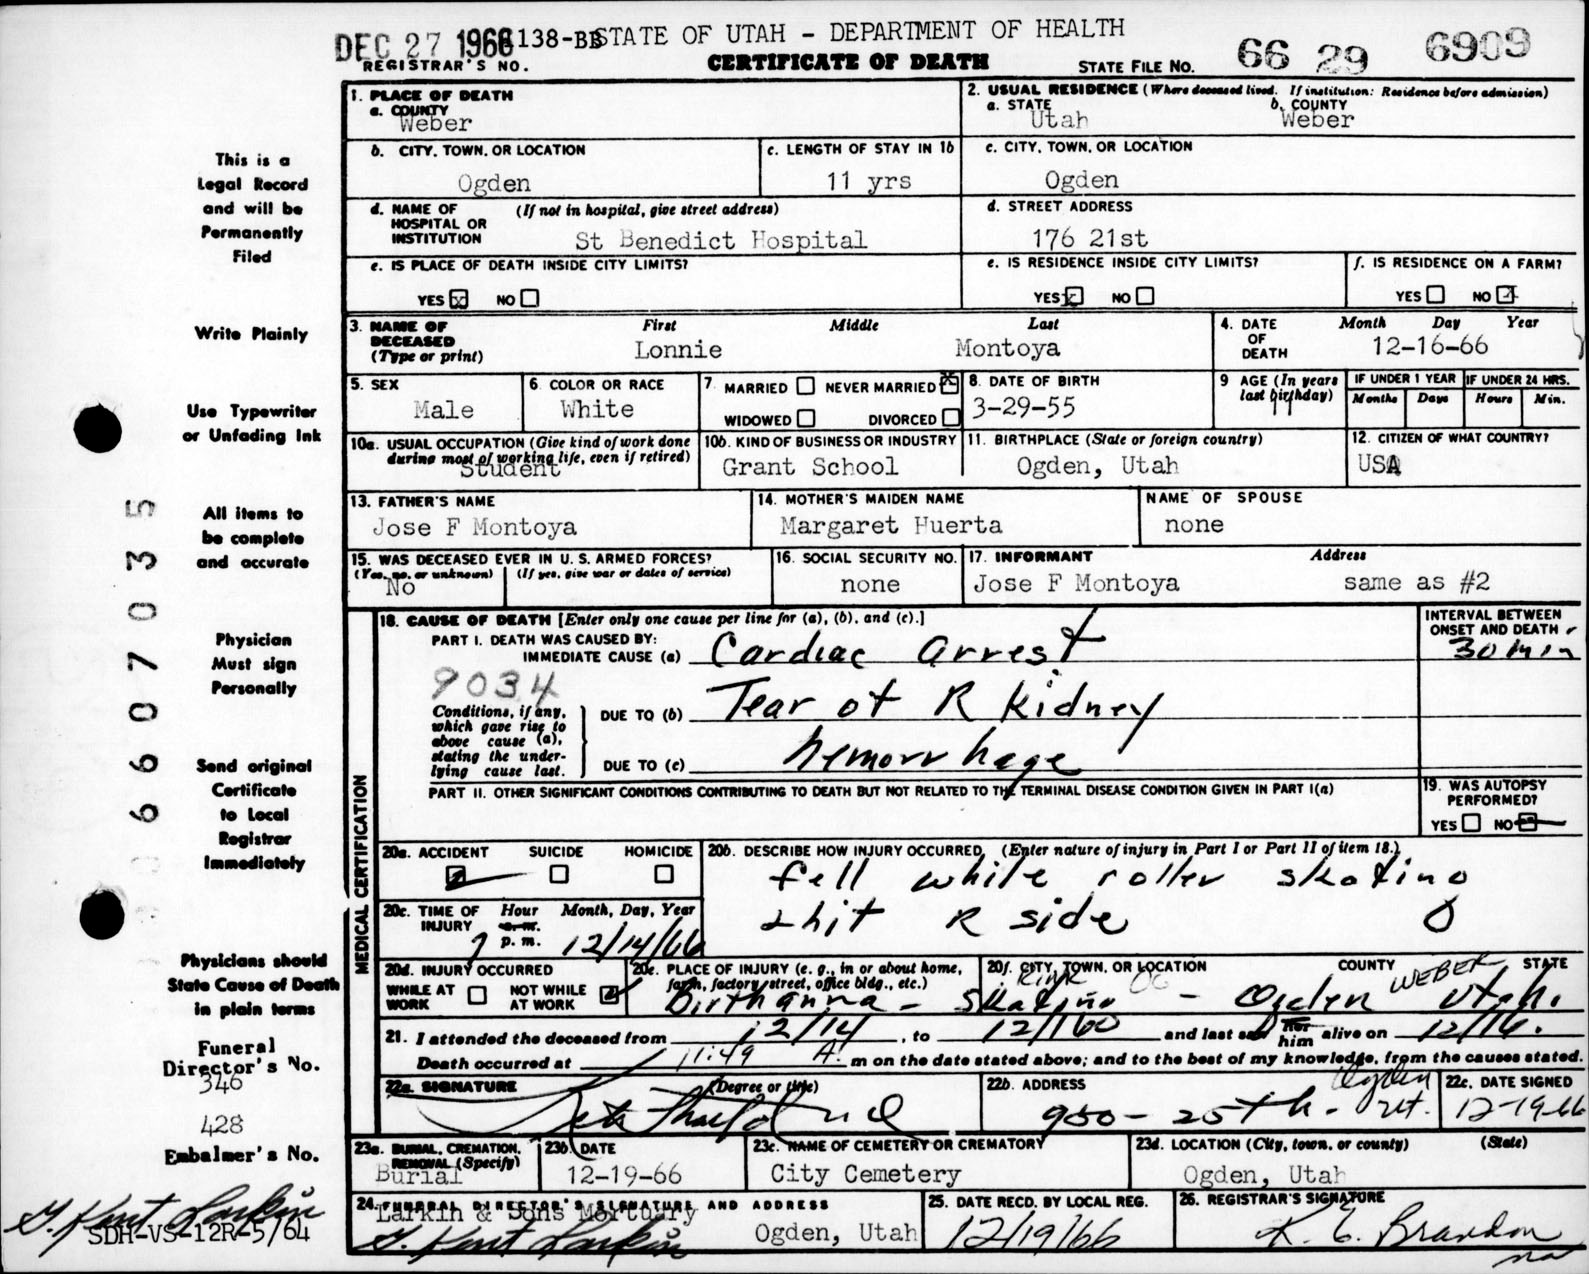 DEC 27 1966 138-BB STATE OF UTAH - DEPARTMENT OF HEALTH
REGISTRAR'S NO. CERTIFICATE OF DEATH STATE FILE NO. 66 29 6909
1. PLACE OF DEATH
a. COUNTY
Weber
2. USUAL RESIDENCE (Where deceased lived. If institution: Residence before admission)
a. STATE b. COUNTY
Utah Weber
b. CITY, TOWN, OR LOCATION
Ogden
c. LENGTH OF STAY IN 1b
11 yrs
c. CITY, TOWN, OR LOCATION
Ogden
d. NAME OF HOSPITAL OR INSTITUTION (If not in hospital, give street address)
St Benedict Hospital
d. STREET ADDRESS
176 21st
e. IS PLACE OF DEATH INSIDE CITY LIMITS?
YES x NO
e. IS RESIDENCE INSIDE CITY LIMITS?
YES x NO
f. IS RESIDENCE ON A FARM?
YES NO x
3. NAME OF DECEASED (Type or print)
First Middle Last
Lonnie Montoya
4. DATE OF DEATH
Month Day Year
12-16-66
5. SEX
Male
6. COLOR OR RACE
White
7. MARRIED NEVER MARRIED x
WIDOWED DIVORCED
8. DATE OF BIRTH
3-29-55
9. AGE (In years last birthday)
11
IF UNDER 1 YEAR IF UNDER 24 HRS.
Months Days Hours Min.
10a. USUAL OCCUPATION (Give kind of work done during most of working life, even if retired)
Student
10b. KIND OF BUSINESS OR INDUSTRY
Grant School
11. BIRTHPLACE (State or foreign country)
Ogden, Utah
12. CITIZEN OF WHAT COUNTRY?
USA
13. FATHER'S NAME
Jose F Montoya
14. MOTHER'S MAIDEN NAME
Margaret Huerta
NAME OF SPOUSE
none
15. WAS DECEASED EVER IN U. S. ARMED FORCES?
(Yes, no, or unknown) (If yes, give war or dates of service)
No
16. SOCIAL SECURITY NO.
none
17. INFORMANT Address
Jose F Montoya same as #2
MEDICAL CERTIFICATION
18. CAUSE OF DEATH [Enter only one cause per line for (a), (b), and (c).]
INTERVAL BETWEEN ONSET AND DEATH
PART I. DEATH WAS CAUSED BY:
IMMEDIATE CAUSE (a) Cardiac arrest 30 min
9034
Conditions, if any, which gave rise to above cause (a), stating the underlying cause last.
DUE TO (b) Tear of R kidney
DUE TO (c) hemorrhage
PART II. OTHER SIGNIFICANT CONDITIONS CONTRIBUTING TO DEATH BUT NOT RELATED TO THE TERMINAL DISEASE CONDITION GIVEN IN PART I(a)
19. WAS AUTOPSY PERFORMED?
YES NO
20a. ACCIDENT SUICIDE HOMICIDE
20b. DESCRIBE HOW INJURY OCCURRED. (Enter nature of injury in Part I or Part II of item 18.)
fell while roller skating
& hit R side
20c. TIME OF INJURY Hour Month, Day, Year
a.m.
7 p.m. 12/14/66
20d. INJURY OCCURRED
WHILE AT WORK NOT WHILE AT WORK
20e. PLACE OF INJURY (e. g., in or about home, farm, factory, street, office bldg., etc.)
20f. CITY, TOWN, OR LOCATION COUNTY STATE
Rink WEBER
Skating - Ogden Utah.
21. I attended the deceased from 12/14, to 12/16 and last saw her him alive on 12/16.
Death occurred at 11:49 A. m on the date stated above; and to the best of my knowledge, from the causes stated.
22a. SIGNATURE (Degree or title)
22b. ADDRESS
950 - 25th - Ogden Ut.
22c. DATE SIGNED
12-19-66
23a. BURIAL, CREMATION, REMOVAL (Specify)
Burial
23b. DATE
12-19-66
23c. NAME OF CEMETERY OR CREMATORY
City Cemetery
23d. LOCATION (City, town, or county) (State)
Ogden, Utah
24. FUNERAL DIRECTOR'S SIGNATURE AND ADDRESS
Larkin & Sons Mortuary
G. Kent Larkin Ogden, Utah
25. DATE RECD. BY LOCAL REG.
12/19/66
26. REGISTRAR'S SIGNATURE
This is a
Legal Record
and will be
Permanently
Filed
Write Plainly
Use Typewriter
or Unfading Ink
All items to
be complete
and accurate
Physician
Must sign
Personally
Send original
Certificate
to Local
Registrar
Immediately
Physicians should
State Cause of Death
in plain terms
Funeral
Director's No.
346
428
Embalmer's No.
G. Kent Larkin
SDH-VS-12R-5/64
66070035